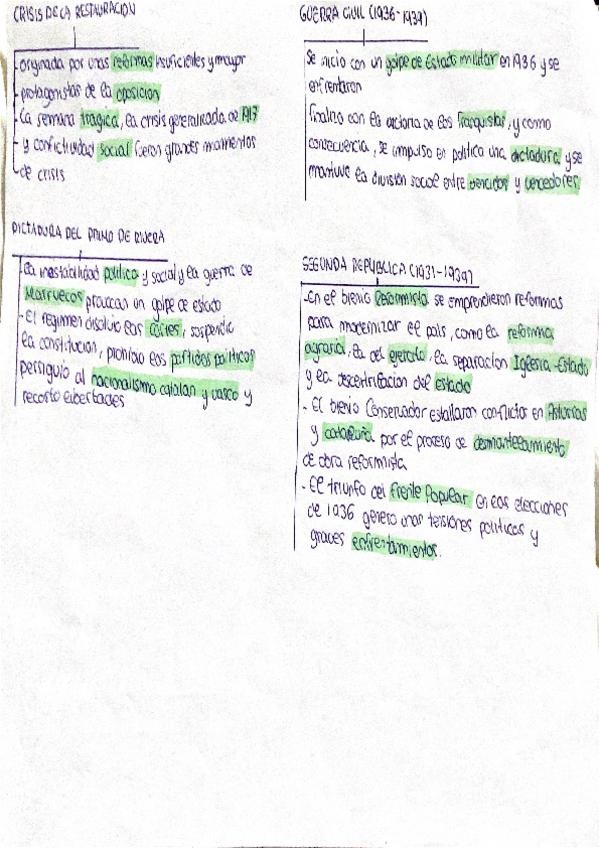 CRISIS DE LA RESTAURACIÓN
originada por unas reformas insuficientes y mayor
protagonistas de la oposicion
La semana tragica, la crisis generalizada de 1917
y conflictividad social fueron grandes momentos
de crisis
DICTADURA DEL PRIMO DE RIVERA
La inestabilidad politica y social y la guerra de
Marruecos provocan un golpe de estado
- El regimen disolvio las Cortes, suspendio
la constitucion, prohibio los partidos politicos
persiguio al nacionalismo catalan y vasco y
recorto libertades
GUERRA CIVIL (1936-1939)
Se inicio con un golpe de Estado militar en 1936 y se
enfrentaron
finalizo con la victoria de los franquistas, y como
consecuencia, se impulso en politica una dictadura y se
mantuvo la división social entre vencidos y vencedores.
SEGUNDA REPUBLICA (1931-1939)
- En el bienio Reformista se emprendieron reformas
para modernizar el pais, como la reforma
agraria, la del ejercito, la separacion Iglesia-Estado
y la descentrifacion del estado
- El bienio Conservador estallaron conflictos en Asturias
y cataluña por el proceso de desmantelamiento
de obra reformista
- El triunfo del Frente Popular en las elecciones
de 1936 genero unas tensiones politicas y
graves enfrentamientos.